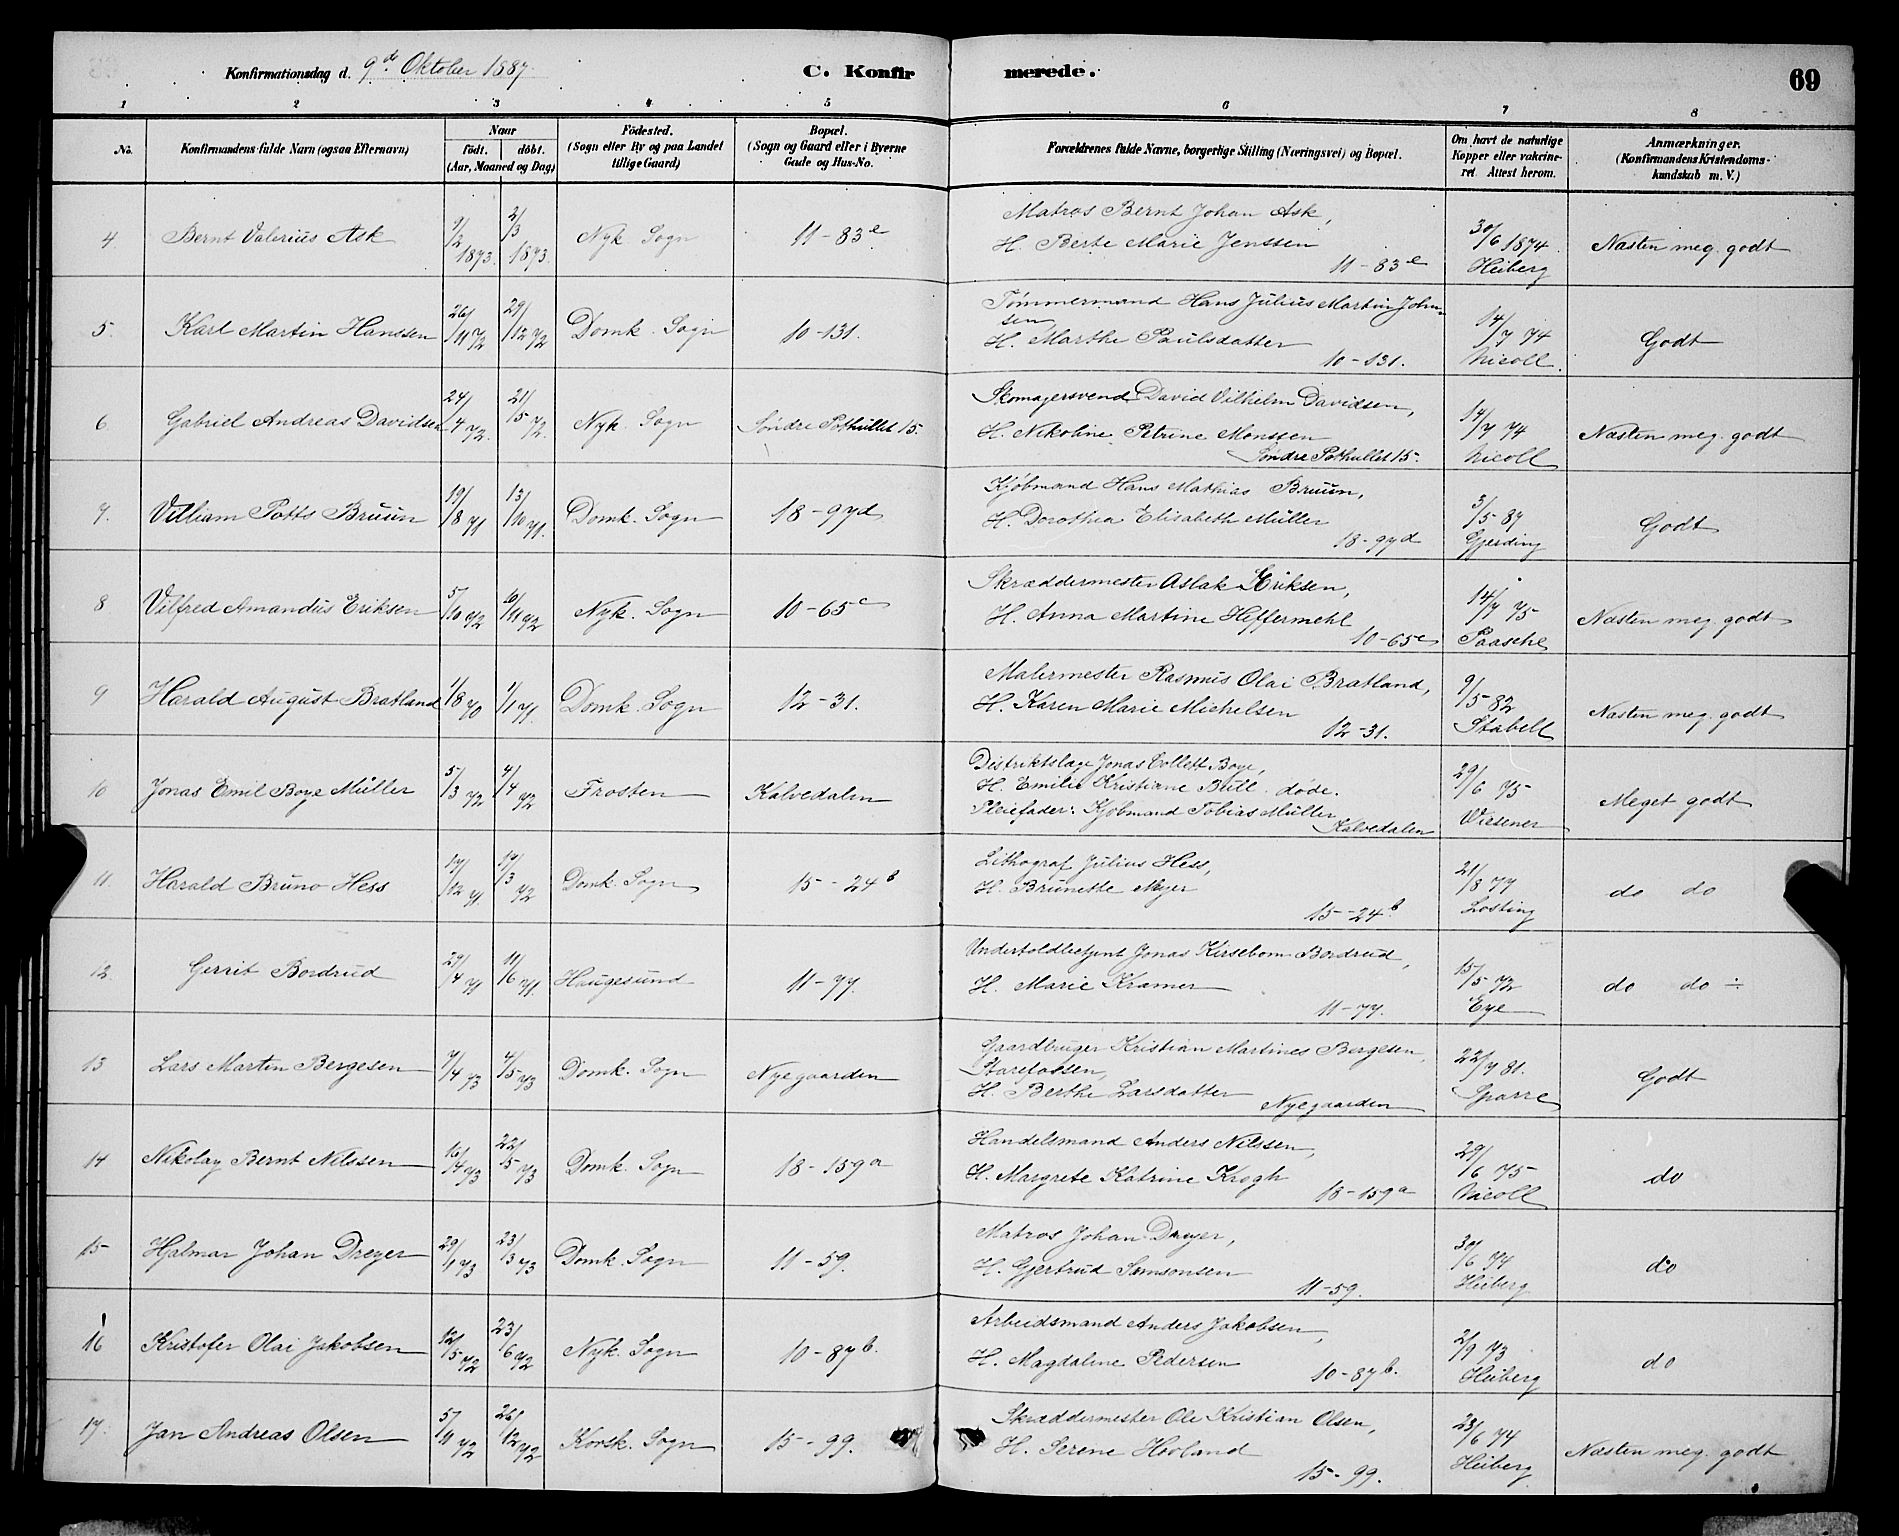 Konfirmationsdag d. 9de Oktober 1887. C. Konfirmerede. 69
1 2 3 4 5 6 7 8
No. Konfirmandens fulde Navn (ogsaa Efternavn) Naar födt. döbt. (Aar, Maaned og Dag) Födested. (Sogn eller By og paa Landet tillige Gaard) Bopæl. (Sogn og Gaard eller i Byerne Gade og Hus-No. Forældrenes fulde Navne, borgerlige Stilling (Næringsvei) og Bopæl. Om havt de naturlige Kopper eller vakcineret Attest herom. Anmærkninger. (Konfirmandens Kristendomskundskab m. V.)
4. Bernt Valerius Ask 9/2 1873. 2/3 1873. Nyk. Sogn 11-83e Matros Bernt Johan Ask,
H. Berte Marie Jenssen
11-83e 30/6 1874. Heiberg Næsten meg. godt
5. Karl Martin Hanssen 26/11 72 29/12 72 Domk. Sogn 10-131. Tømmermand Hans Julius Martin Johnsen
H. Marthe Paulsdatter
10-131. 14/7 74 Nicoll. Godt
6. Gabriel Andreas Davidsen 24/4 72. 21/5 72. Nyk. Sogn Søndre Pothullet 15. Skomagersvend David Vilhelm Davidsen,
H. Nikoline Petrine Monssen
Søndre Pothullet 15. 14/7 74 Nicoll Næsten meg. godt
7. Villiam Potts Bruun 19/8 71 13/10 71. Domk. Sogn 18-97d Kjøbmand Hans Mathias Bruun,
H. Dorothea Elisabeth Müller
18-97d 3/5 87 Gjerding Godt
8 Vilfred Amandus Eriksen 5/10 72 10/11 72 Nyk. Sogn 10-65c Skræddermester Aslak Eriksen,
H. Anna Martine Heffermehl
10-65c 14/7 75 Paasche Næsten meg. godt
9 Harald August Bratland 1/8 70 1/1 71. Domk. Sogn 12-31. Malermester Rasmus Olai Bratland,
H. Karen Marie Michelsen
12-31. 9/5 82 Stabell Næsten meg. godt
10 Jonas Emil Boye Müller 5/3 72 4/4 72 Frosten Kalvedalen Distriktslæge Jonas Collett Boye,
H. Emilie Kristiane Bull. døde.
Pleiefader: Kjøbmand Tobias Müller
Kalvedalen 29/6 75 Wiesener Meget godt
11. Harald Bruno Hess 17/12 71. 17/3 72 Domk. Sogn 15-24b Lithograf Julius Hess,
H. Brunette Meyer
15-24b. 21/8 77 Losting do do
12. Gerrit Bordrud 29/4 71 11/6 71. Haugesund 11-77. Undertoldbetjent Jonas Kirsebom Bordrud,
H. Marie Kramer
11-77. 15/5 72 Eye do do ÷
13 Lars Martin Bergesen 7/4 73 4/5 73 Domk. Sogn Nyegaarden Gaardbruger Kristian Martines Bergesen,
H. Berthe Larsdatter
Nyegaarden 22/7 81. Sparre Godt
14 Nikolay Bernt Nilssen 16/4 73 22/5 73 Domk. Sogn 18-159a Handelsmand Anders Nilssen,
H. Margrete Katrine Krogh
18-159a 29/6 75 Nicoll do
15 Hjalmar Johan Dreyer 29/1 73 23/3 73 Domk. Sogn 11-59. Matros Johan Dreyer,
H. Gjertrud Samsonsen
11-59. 30/6 74 Heiberg do
16 Kristofer Olai Jakobsen 12/5 72 23/6 72 Nyk. Sogn 10-87b. Arbeidsmand Anders Jakobsen,
H. Magdaline Pedersen
10-87b. 2/9 73 Heiberg do
17. Jan Andreas Olsen 5/11 72 26/12 72 Korsk. Sogn 15-99. Skræddermester Ole Kristian Olsen,
H. Serene Hovland
15-99. 23/6 74 Heiberg Næsten meg. godt